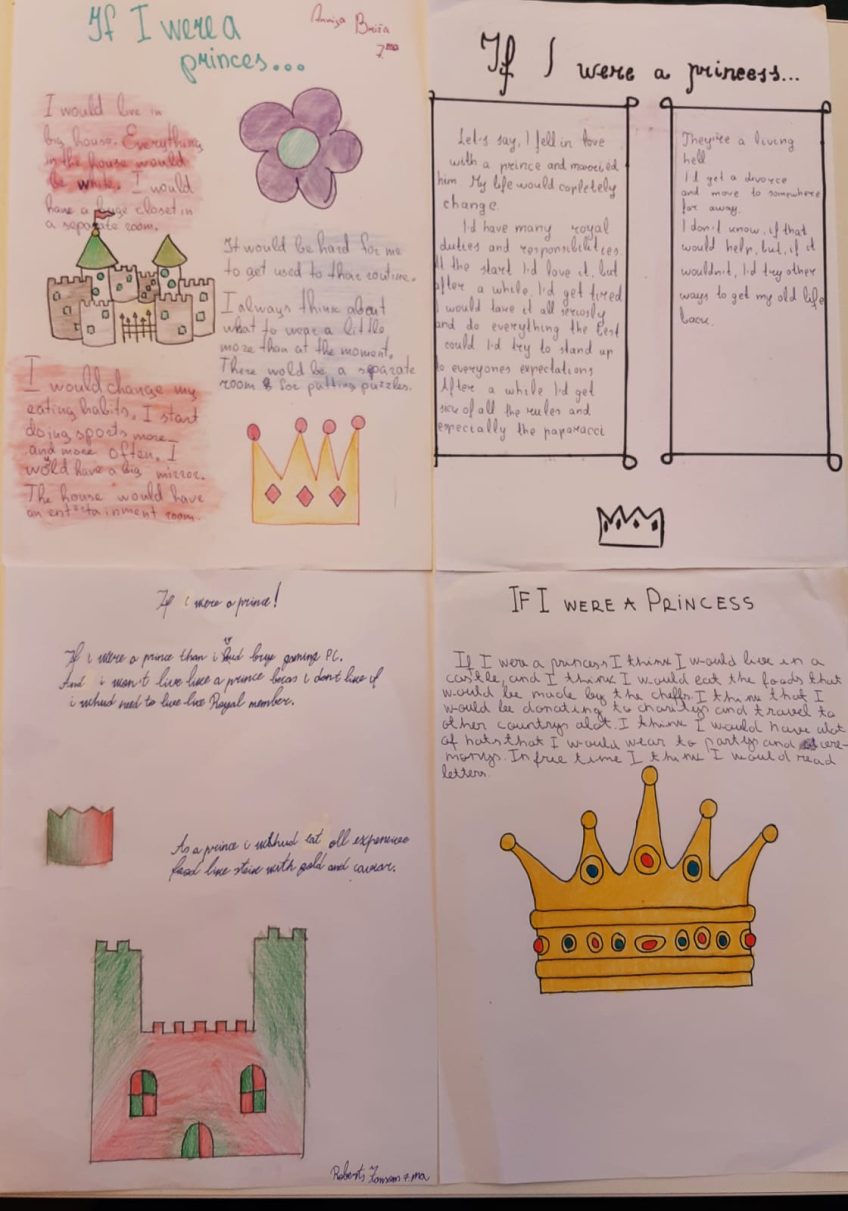 If I were a
princes...
7.ma
I would live in
big house. Everything
in the house would
be white. I would
have a huge closet in
a separate room.
It would be hard for me
to get used to that routine.
I always think about
what to wear a little
more than at the moment.
There wold be a separate
room for putting puzzles.
I would change my
eating habits. I start
doing sports more
and more often. I
would have a big mirror.
The house would have
an entertainment room.
If I were a princess...
Let's say, I fell in love
with a prince and married
him. My life would copletely
change.
I'd have many royal
duties and responsibilities.
At the start I'd love it, but
after a while, I'd get tired
I would take it all seriosly
and do everything the best
could I'd try to stand up
to everyones expectations
After a while I'd get
sick of all the rules and
especially the paparacci
They're a living
hell
I'd get a divorce
and move to somewhere
far away.
I don't know, if that
would help, but, if it
wouldn't, I'd try other
ways to get my old life
back.
If i were a prince!
If i were a prince than i buy gaming PC.
And i won't live like a prince becas i dont like if
i whud need to live like Royal member.
As a prince i whhud eat all expensive
food like steik with gold and caviar.
Roberts 7.ma
IF I WERE A PRINCESS
If I were a princess I think I would live in a
castle, and I think I would eat the foods that
would be made by the cheffs. I think that I
would be donating to charitys and travel to
other countrys alot. I think I would have alot
of hats that I would wear to partys and cere-
monys. In free time I think I would read
letters.